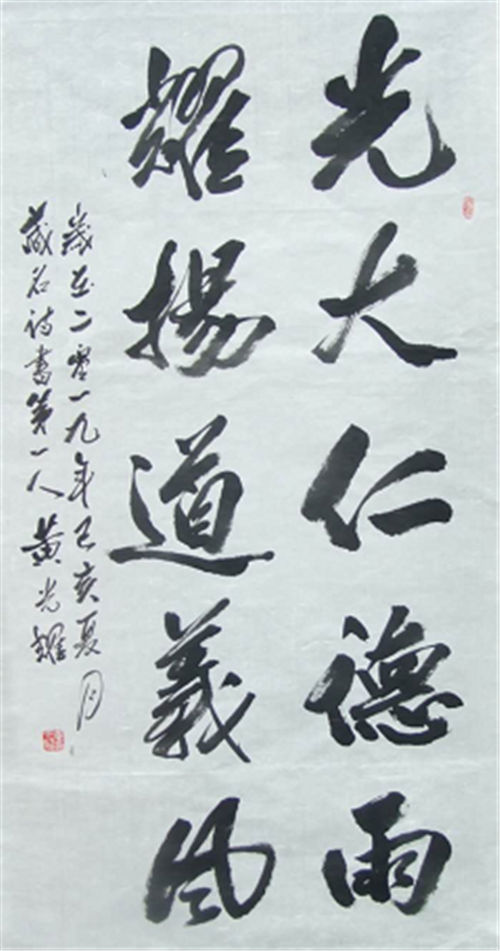 光大仁德雨
耀揚道義風
歲在二零一九年己亥夏月
藏名詩書第一人 黄光耀